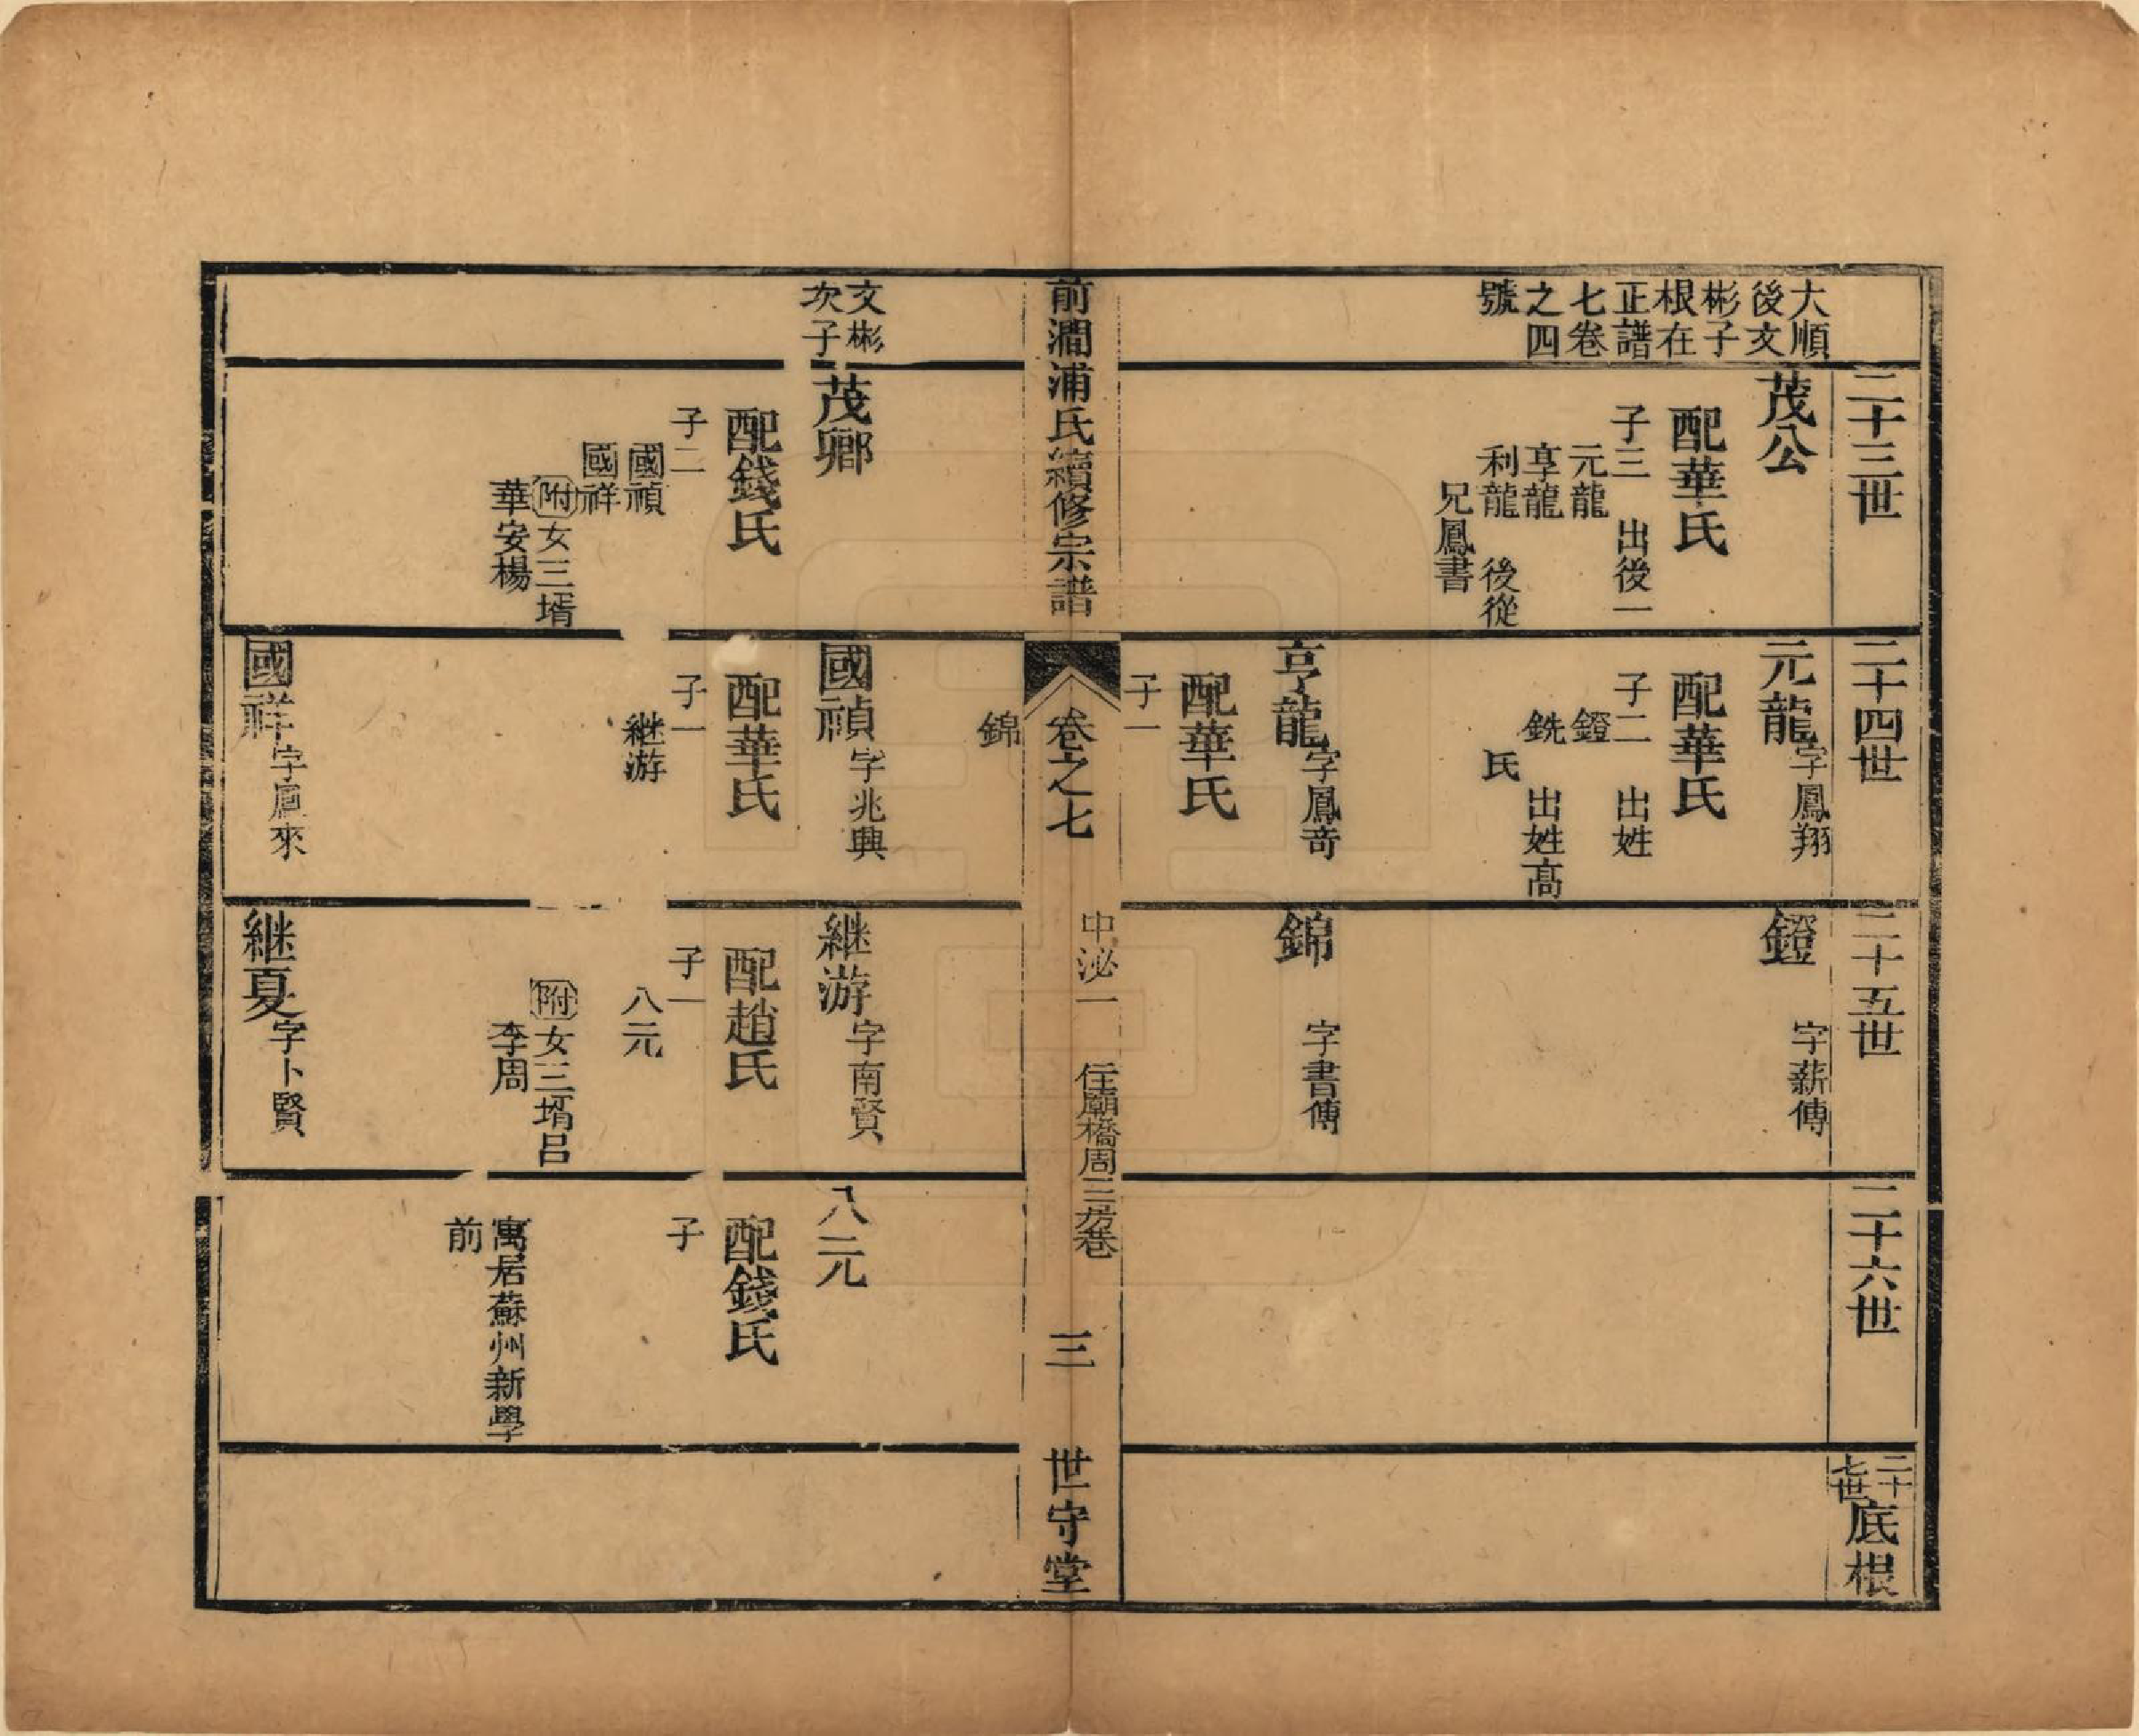 二十三世
二十四世
二十五世
二十六世
二十
七世
底根
大順
後文
彬子
根在
正譜
七卷
之四
號
茂公
配華氏
子三 出後一
元龍
享龍
利龍 後從
兄鳳書
元龍字鳳翔
配華氏
子二 出姓
鐙
銑 出姓高
氏
鐙 字薪傳
亨龍字鳳奇
配華氏
子一
錦
錦 字書傳
前澗浦氏續修宗譜
卷之七
中泌一 住廟橋周三房巷
三
世守堂
文彬
次子
茂卿
配錢氏
子二
國禎
國祥
附女三壻
華安楊
國禎字兆興
配華氏
子一
継游
継游字南賢
配趙氏
子一
八元
附女三壻呂
李周
八元
配錢氏
子
寓居蘇州新學
前
國祥字鳳來
継夏字卜賢